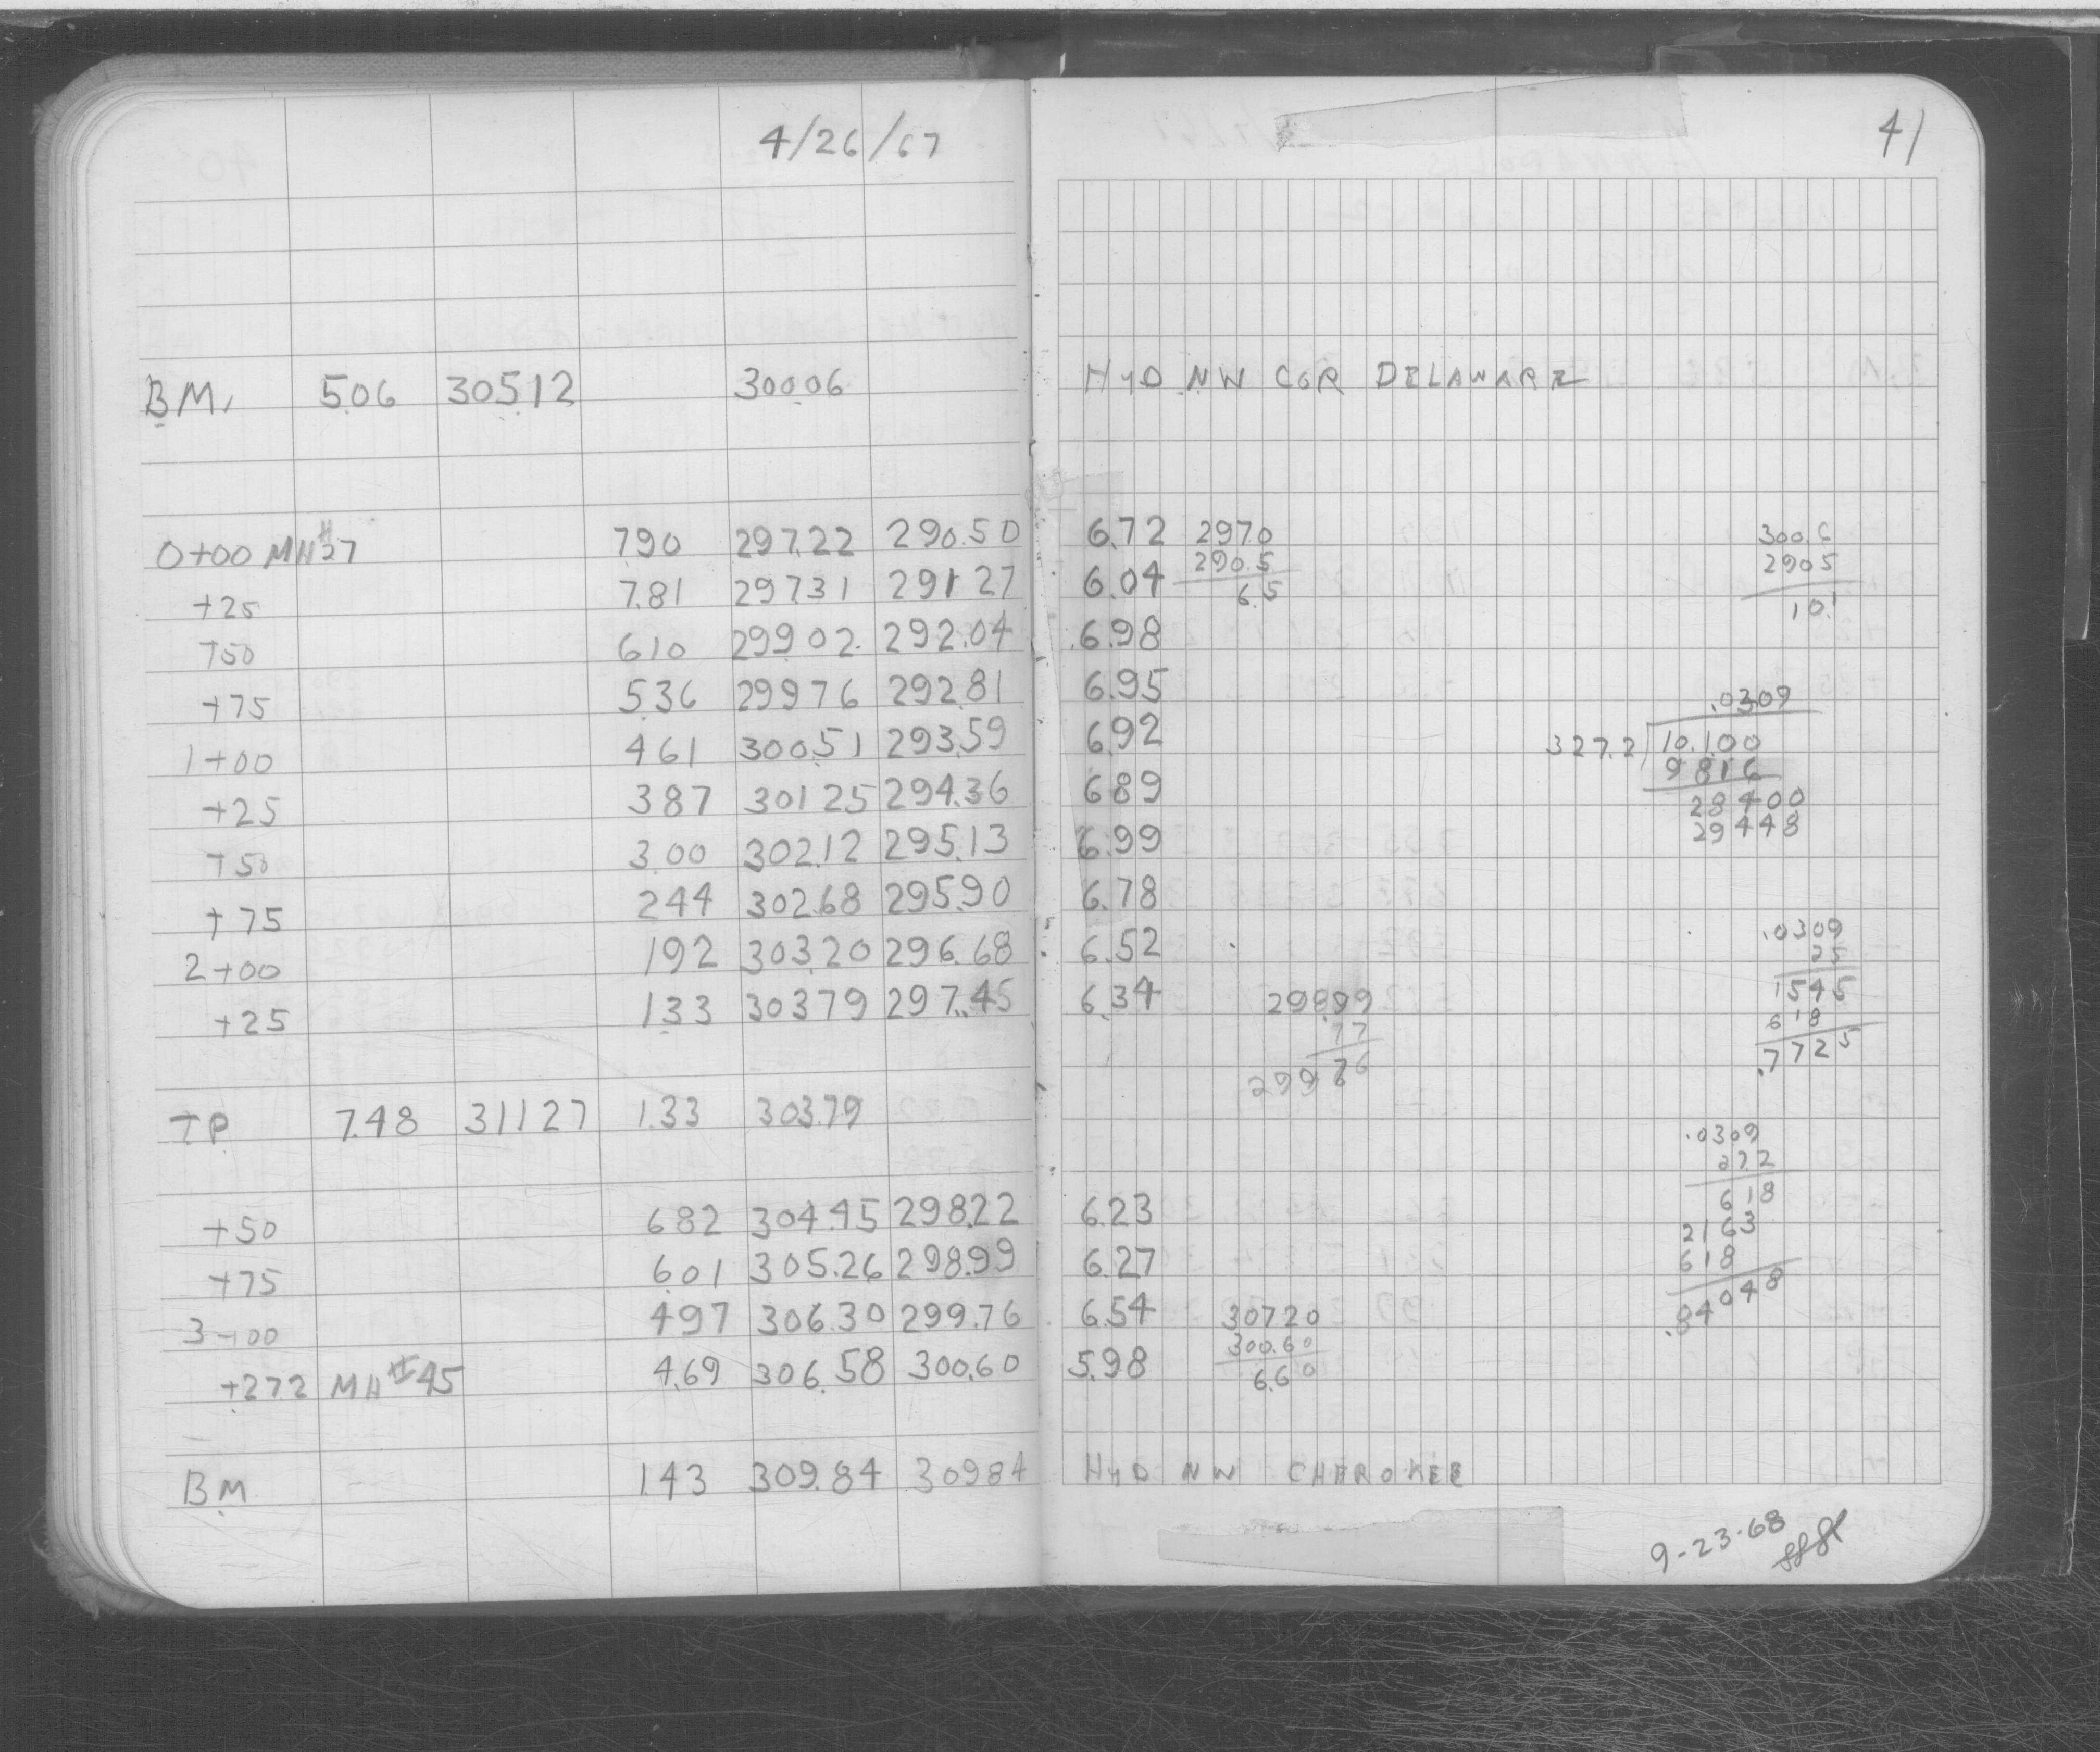 4/26/67
41
BM. 5.06 305.12 300.06 HYD NW COR DELAWARE
0+00 MH#27 790 297.22 290.50 6.72 297.0 300.6
290.5 2905
+25 7.81 297.31 291.27 6.04 6.5 10.1
+50 610 299.02 292.04 6.98
+75 5.36 299.76 292.81 6.95 .0309
1+00 461 300.51 293.59 6.92 327.2 10.100
9 816
+25 387 301.25 294.36 6.89 28400
29448
+50 3.00 302.12 295.13 6.99
+75 244 302.68 295.90 6.78 .0309
2+00 192 303.20 296.68 6.52 25
+25 1.33 303.79 297.45 6.34 298.99 1545
77 618
299.76 .7725
TP 7.48 311.27 1.33 303.79 .0309
27.2
+50 682 304.45 298.22 6.23 618
2163
+75 601 305.26 298.99 6.27 618
3+00 497 306.30 299.76 6.54 307.20 .84048
300.60
+27.2 MH#45 4.69 306.58 300.60 5.98 6.60
BM 1.43 309.84 309.84 HYD NW CHEROKEE
9-23-68